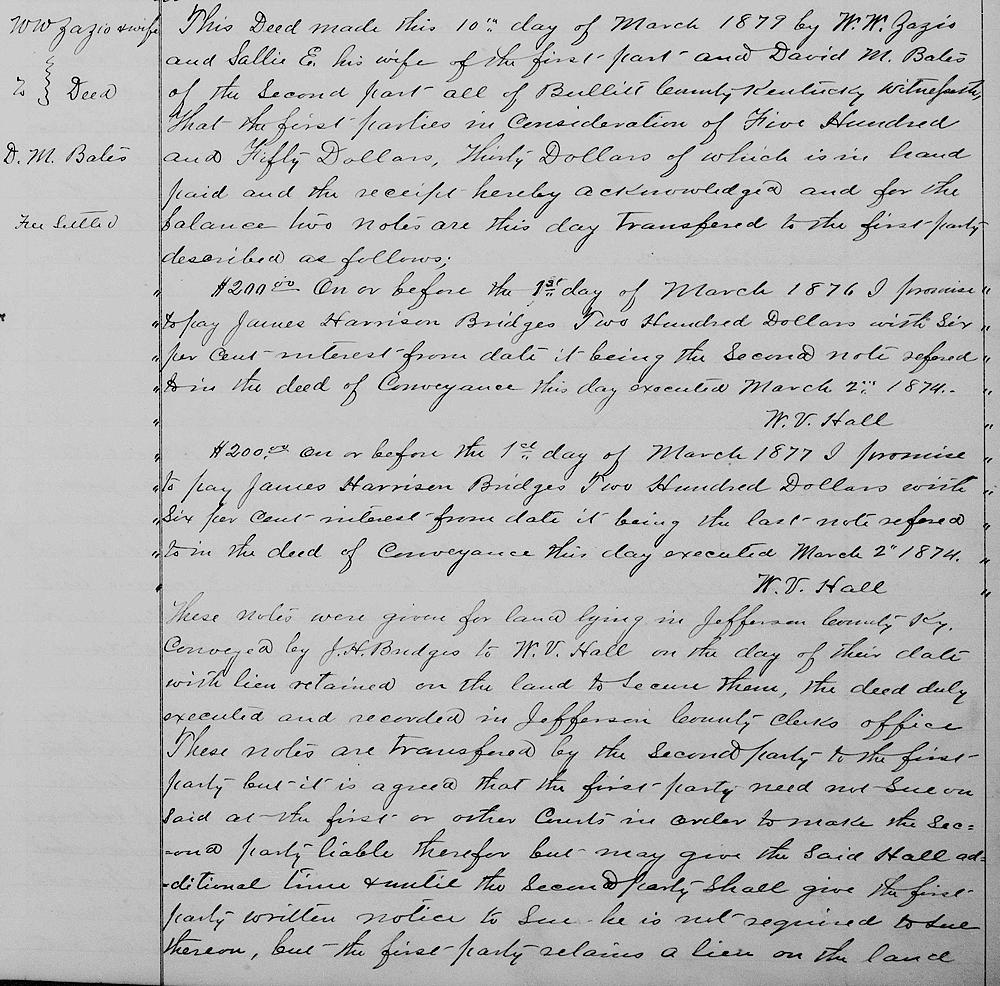 WW Zazio & wife
to } Deed
D. M. Bates
Fee Settled
This Deed made this 10th day of March 1877 by W. W. Zazio
and Sallie E. his wife of the first part and David M. Bates
of the Second part all of Bullitt County Kentucky Witnesseth,
That the first parties in Consideration of Five Hundred
and Fifty Dollars, Thirty Dollars of which is in hand
paid and the receipt hereby acknowledged and for the
balance two notes are this day transfered to the first party
described as follows;
" $200.00 On or before the 1st day of March 1876 I promise "
" to pay James Harrison Bridges Two Hundred Dollars with Six "
" per Cent interest from date it being the Second note refered "
" to in the deed of Conveyance this day executed March 2" 1874. "
" W. V. Hall "
" $200.00 On or before the 1st day of March 1877 I promise "
" to pay James Harrison Bridges Two Hundred Dollars with "
" Six per Cent interest from date it being the last note refered "
" to in the deed of Conveyance this day executed March 2" 1874. "
" W. V. Hall "
These notes were given for land lying in Jefferson County Ky.
Conveyed by J. H. Bridges to W. V. Hall on the day of their date
with lien retained on the land to Secure them, the deed duly
executed and recorded in Jefferson County Clerks office
These notes are transfered by the Second party to the first
party but it is agreed that the first party need not Sue on
Said at the first or other Courts in order to make the Sec=
=ond party liable therefor but may give the Said Hall ad-
-ditional time & until the Second party Shall give the first
party written notice to Sue he is not required to sue
thereon, but the first party retains a lien on the land